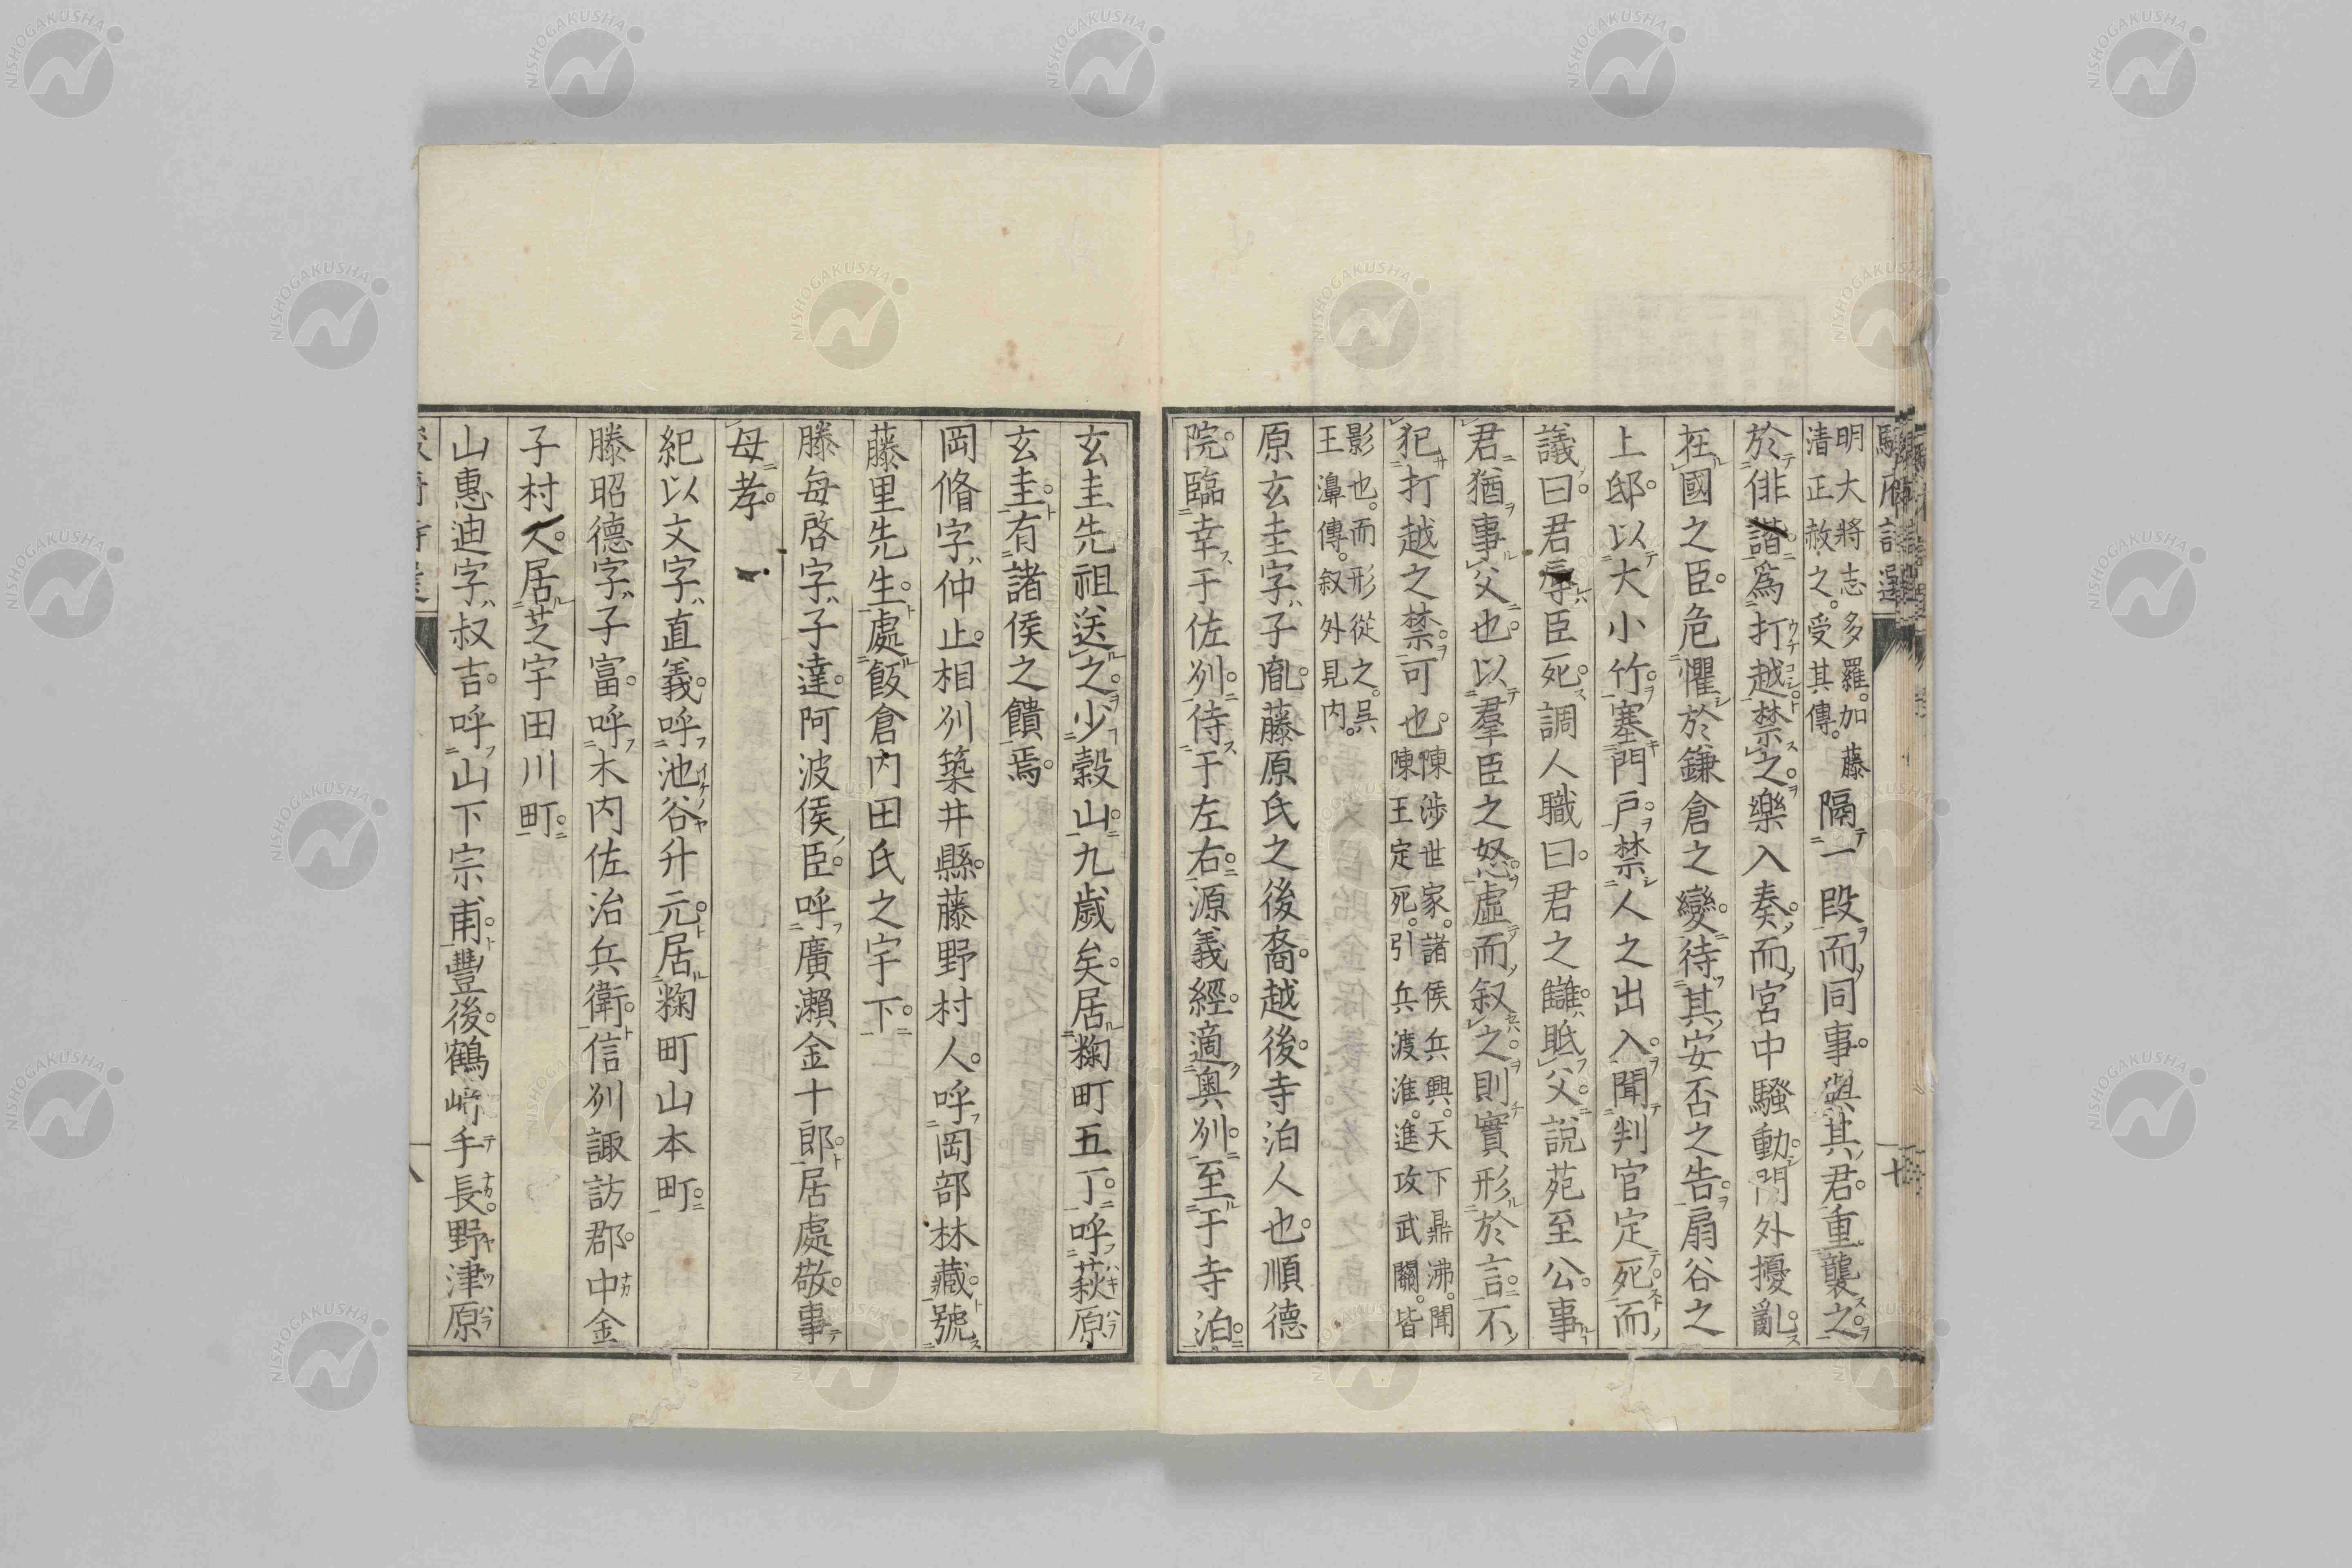 明大將志多羅。加藤
清正赦之。受其傳。
隔一段而同事。與其君。重襲之
於俳諧爲打越禁之。樂入奏。而宮中騷動。門外擾亂。
在國之臣。危懼於鎌倉之變。待其安否之告。扇谷之
上邸。以大小竹。塞門戸。禁人之出入。聞判官定死。而
議曰。君辱臣死。調人職曰。君之讎。眡父。説苑至公。事
君猶事父也。以羣臣之怒。虛而叙之。則實形於言。不
犯打越之禁。可也。
陳渉世家。諸侯兵興。天下鼎沸。聞
陳王定死。引兵渡淮。進攻武關。皆
影也。而形從之。呉
王濞傳。叙外見内。
原玄圭字子胤。藤原氏之後裔。越後。寺泊人也。順德
院。臨幸于佐州。侍于左右。源義經。適奧州。至于寺泊。
玄圭先祖送之。少穀山。九歳矣。居麹町五丁。呼萩原
玄圭。有諸侯之饋焉。
岡脩字仲止。相州築井縣。藤野村人。呼岡部林藏。號
藤里先生。處飯倉内田氏之宇下。
滕毎啓字子達。阿波侯臣。呼廣瀬金十郎。居處敬。事
母孝。
紀以文字直義。呼池谷升元。居麹町山本町。
滕昭德字子富。呼木内佐治兵衛。信州諏訪郡。中金
子村人。居芝宇田川町。
山惠迪字叔吉。呼山下宗甫。豐後。鶴﨑手長。野津原